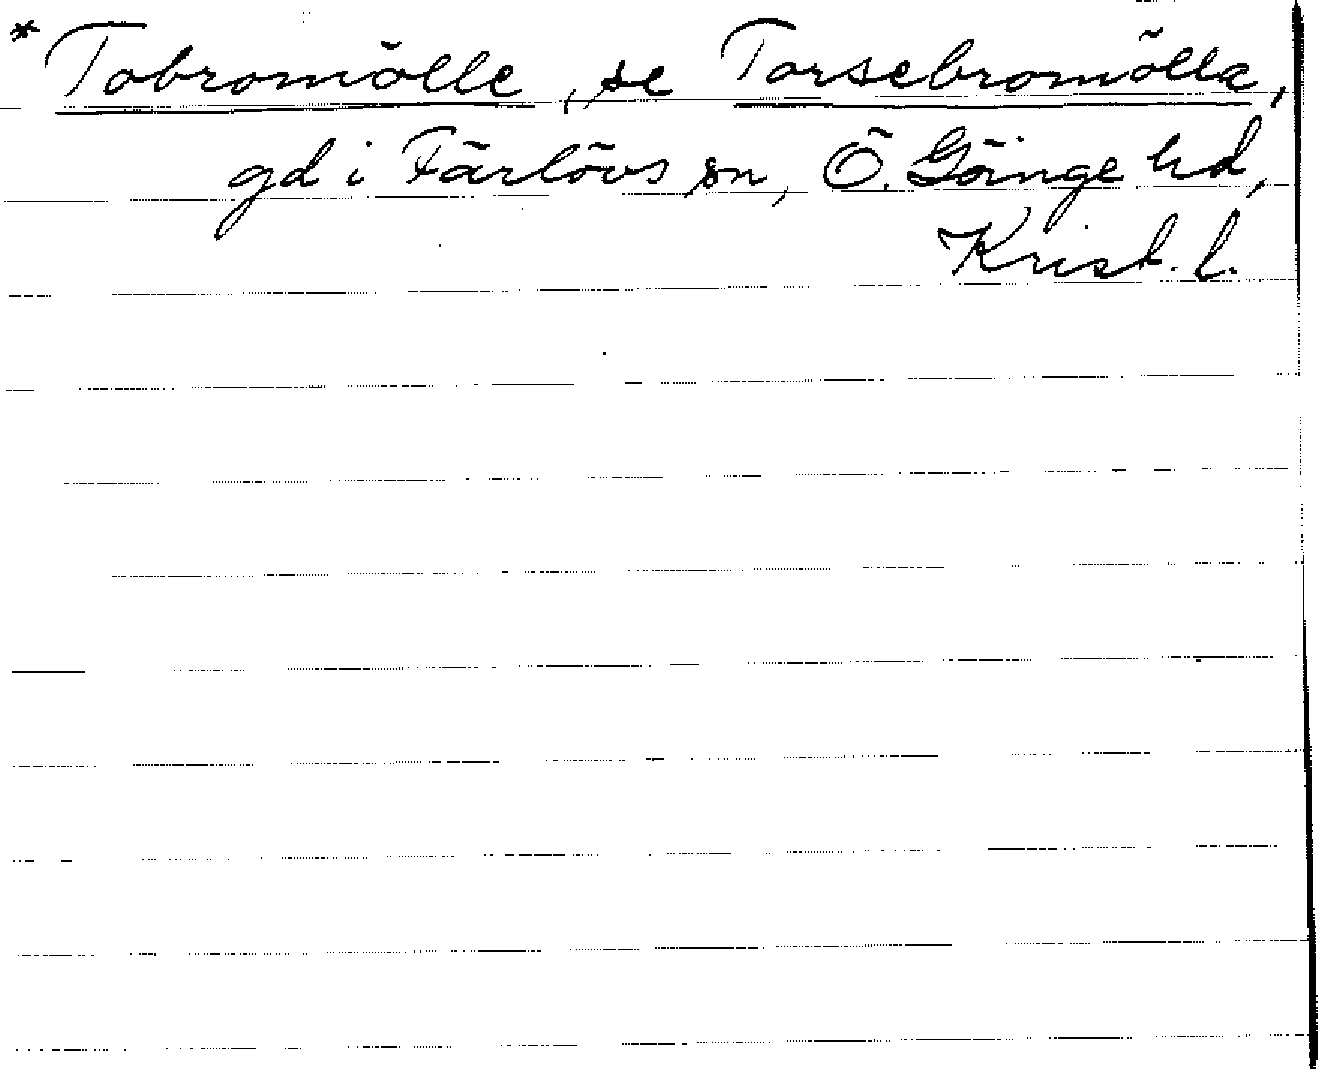 * Tobromölle, se Torsebromölla,
gd i Färlövs sn, Ö. Göinge hd,
Krist. l.